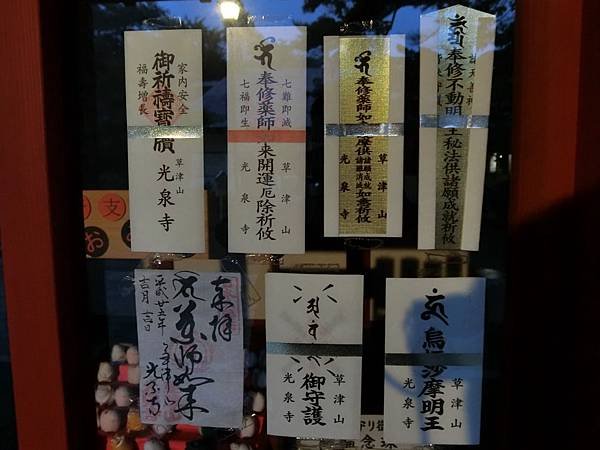 家内安全
御祈禱寳牘
福壽増長
草津山
光泉寺
七難即滅
奉修薬師
来開運厄除祈攸
七福即生
草津山
光泉寺
奉修薬師如
摩供
諸願成就
諸難消滅
如意祈攸
草津山
光泉寺
奉修不動明王秘法供諸願成就祈攸
奉拝
薬師如来
平成廿五年
草津山
光泉寺
御守護
草津山
光泉寺
烏
沙摩明王
草津山
光泉寺
支
お
念珠